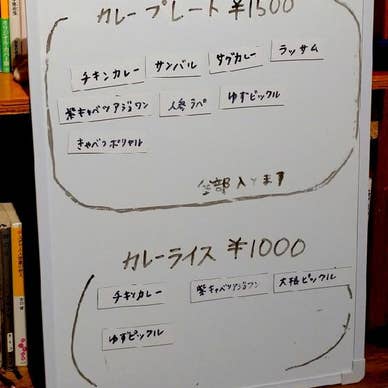 カレープレート ¥1500
チキンカレー サンバル サグカレー ラッサム
紫キャベツアジョワン 人参ラペ ゆずピックル
きゃべつポリヤル
全部入ります
カレーライス ¥1000
チキンカレー 紫キャベツアジョワン 大根ピックル
ゆずピックル